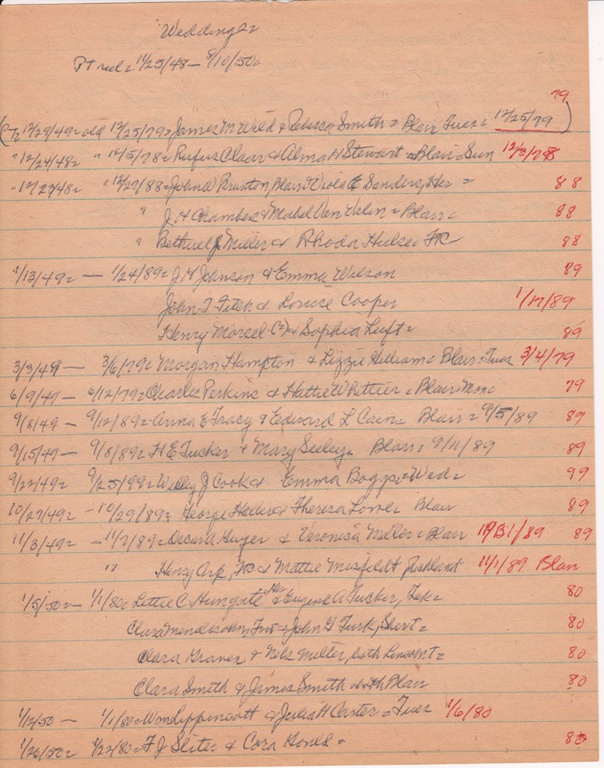 Weddings
Pt rul = 11/25/48 - 8/10/50 =
79
(Pt 12/29/49 = old 12/25/79 = James M Wild & Rebecca Smith = Blair Tues = 12/25/79)
" 12/24/48 = " 12/5/78 = Rufus Claar & Alma H Stewart = Blair = Sun 12/3/78
" 12/29/48 = " 12/27/88 = John A Bruston, Blair Viola E Sanders, Her = 88
" J. H Chambers & Mabel Van Valin = Blair = 88
" Betherel J Miller & Rhoda Hulse FC 88
1/13/49 = — 1/24/89 = J. H Johnson & Emma Wilson 89
John T Fitch & Louise Cooper 1/17/89
Henry Marcel & Sophia Luft = 89
3/3/49 — 3/6/79 = Morgan Hampton & Lizzie Williams = Blair = Tues 3/4/79
6/9/49 — 6/12/79 = Charles Perkins & Hattie Whittier = Blair = Mon 79
9/8/49 - 9/12/89 = Anna E Tracy & Edward L Cain = Blair = 9/5/89 89
9/15/49 - 9/18/89 = H E Tucker & Mary Seeley = Blair = 9/11/89 89
9/22/49 = 9/25/99 = Willy J Cook & Emma Boggs = Wed = 99
10/27/49 = - 10/29/89 = George Heller & Theresa Lone = Blair 89
11/3/49 = - 11/7/89 = Oscar A Guyer & Veronica Miller = Blair 10/31/89 89
" Henry Arp, FC & Mattie Misfeldt, Fishland 11/1/89 Blair
1/5/50 — 1/1/80 = Lettie C Hungate Her & Eugene A Tucker, Tek = 80
Clara Mendelsohn, & John G Turk, Short = 80
Clara Kraner & Nels Miller, both = 80
Clara Smith & James Smith both Blair 80
1/12/50 — 1/1/80 = Wm Lippincott & Julia H Carter = Tues 1/6/80
1/26/50 = 1/22/80 = F J Sliter & Cora Gould = 80